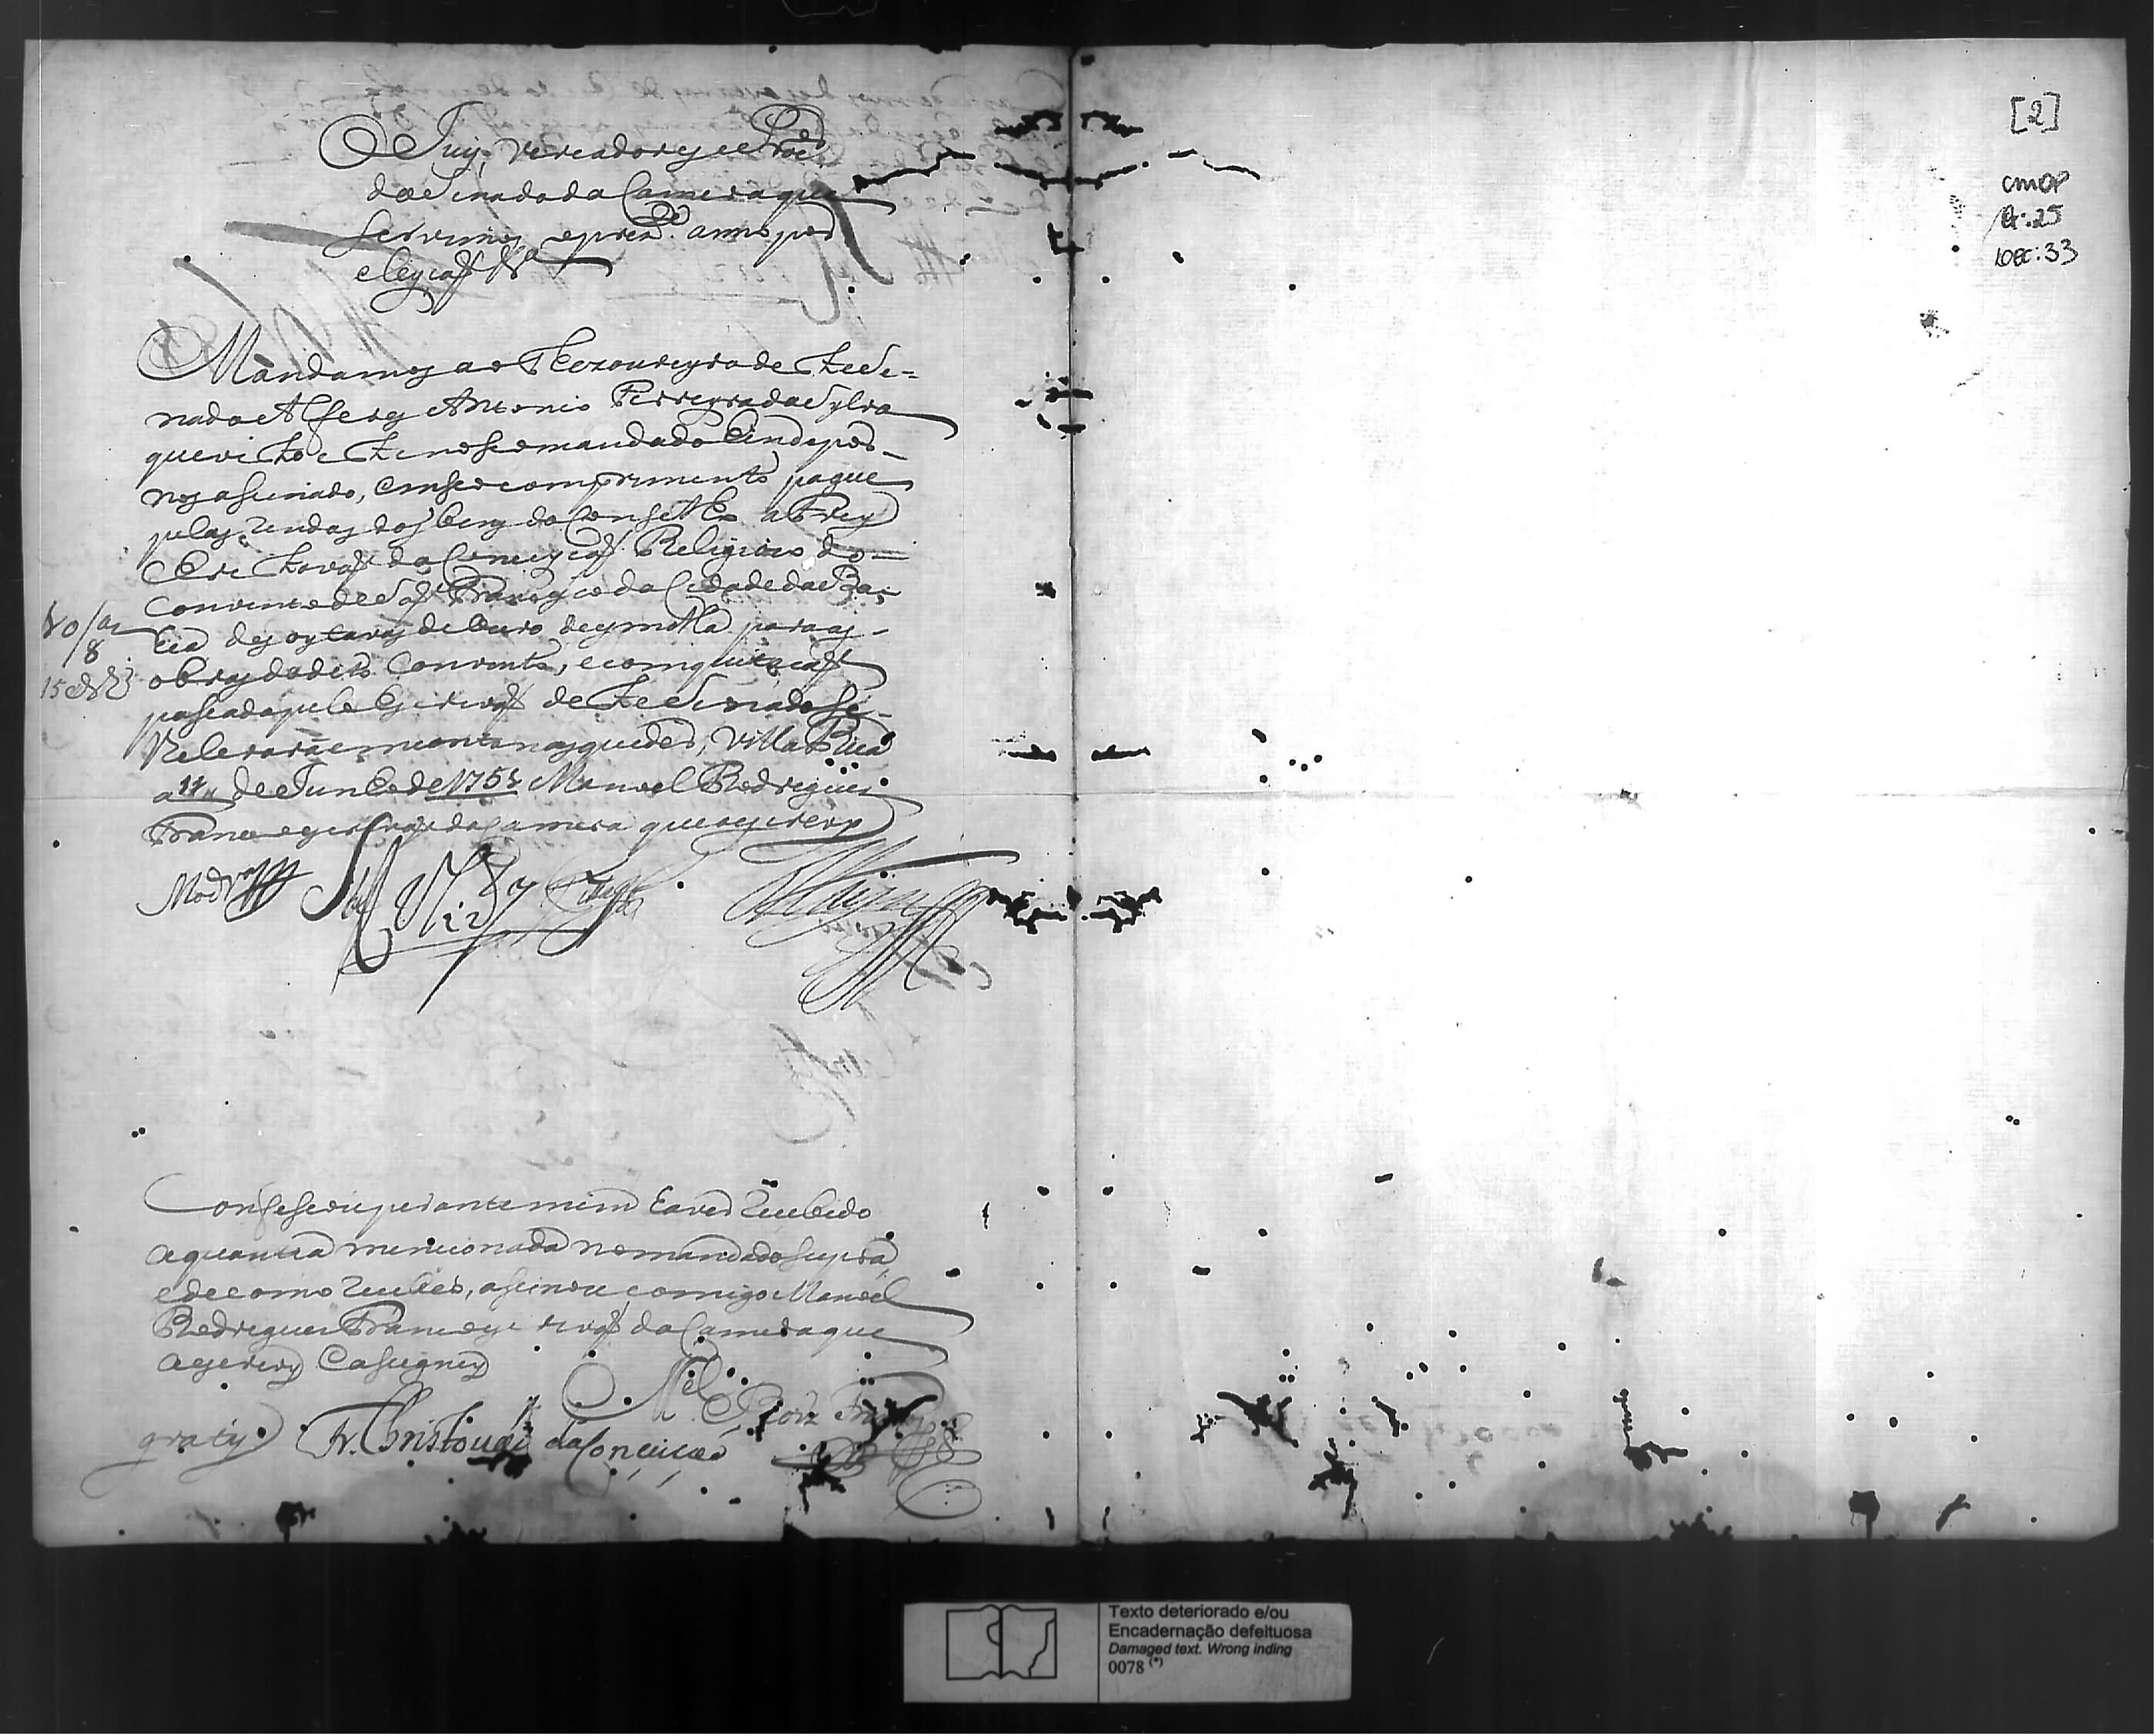 O Juiz, Vereadores e Proc.or
do Senado da Camera que
servimos o prez.te anno por
eleyçaõ &.a
Mandamos ao Thezoureyro deste Se-
nado o Alferes Antonio Ferreyra da Sylva
que visto este noso mandado hindo por-
nos asinado, em seo comprimento pague
pelas rendas dos bens do Cons.o a Frey
Christovaõ da Conceyçaõ Religiozo do
Convento de Saõ Francisco da Cidade da Ba-
hia des oytavas de ouro de esmolla para as
obras do dito Convento, e com quitaçaõ
pasada pelo Escrivaõ deste Senado se
lhe levará em conta nas que der, Villa Rica
a de Junho de 175 Manoel Rodrigues
Franco escrivaõ da Camera que o escrevy
Confesou perante mim haver recebido
a quantia mencionada no mandado supra
e de como recebeo, asinou comigo Manoel
Rodrigues Franco escrivaõ da Camera que
o escrevy e asigney
M.el Roiz Franco
gratis Fr. Christovaõ da Conceicaõ
[2]
CMOP
Cx: 25
DOC: 33
Texto deteriorado e/ou
Encadernação defeituosa
Damaged text. Wrong inding
0078 (*)